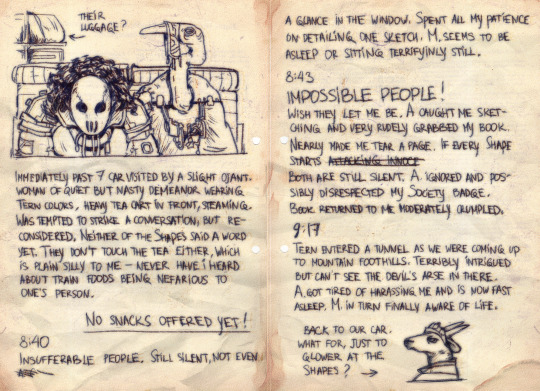 THEIR
LUGGAGE?
IMMEDIATELY PAST 7 CAR VISITED BY A SLIGHT OJANT.
WOMAN OF QUIET BUT NASTY DEMEANOR WEARING
TERN COLORS, HEAVY TEA CART IN FRONT, STEAMING.
WAS TEMPTED TO STRIKE A CONVERSATION, BUT RE-
CONSIDERED. NEITHER OF THE SHAPES SAID A WORD
YET. THEY DON'T TOUCH THE TEA EITHER, WHICH
IS PLAIN SILLY TO ME – NEVER HAVE I HEARD
ABOUT TRAIN FOODS BEING NEFARIOUS TO
ONE'S PERSON.
NO SNACKS OFFERED YET!
8:40
INSUFFERABLE PEOPLE. STILL SILENT, NOT EVEN
A GLANCE IN THE WINDOW. SPENT ALL MY PATIENCE
ON DETAILING ONE SKETCH. M. SEEMS TO BE
ASLEEP OR SITTING TERRIFYINLY STILL.
8:43
IMPOSSIBLE PEOPLE!
WISH THEY LET ME BE. A. CAUGHT ME SKET-
CHING AND VERY RUDELY GRABBED MY BOOK.
NEARLY MADE ME TEAR A PAGE. IF EVERY SHAPE
STARTS
BOTH ARE STILL SILENT. A. IGNORED AND POS-
SIBLY DISRESPECTED MY SOCIETY BADGE.
BOOK RETURNED TO ME MODERATELY CRUMPLED.
9:17
TERN ENTERED A TUNNEL AS WE WERE COMING UP
TO MOUNTAIN FOOTHILLS. TERRIBLY INTRIGUED
BUT CAN'T SEE THE DEVIL'S ARSE IN THERE.
A. GOT TIRED OF HARASSING ME AND IS NOW FAST
ASLEEP. M. IN TURN FINALLY AWARE OF LIFE.
BACK TO OUR CAR.
WHAT FOR, JUST TO
GLOWER AT THE
SHAPES?